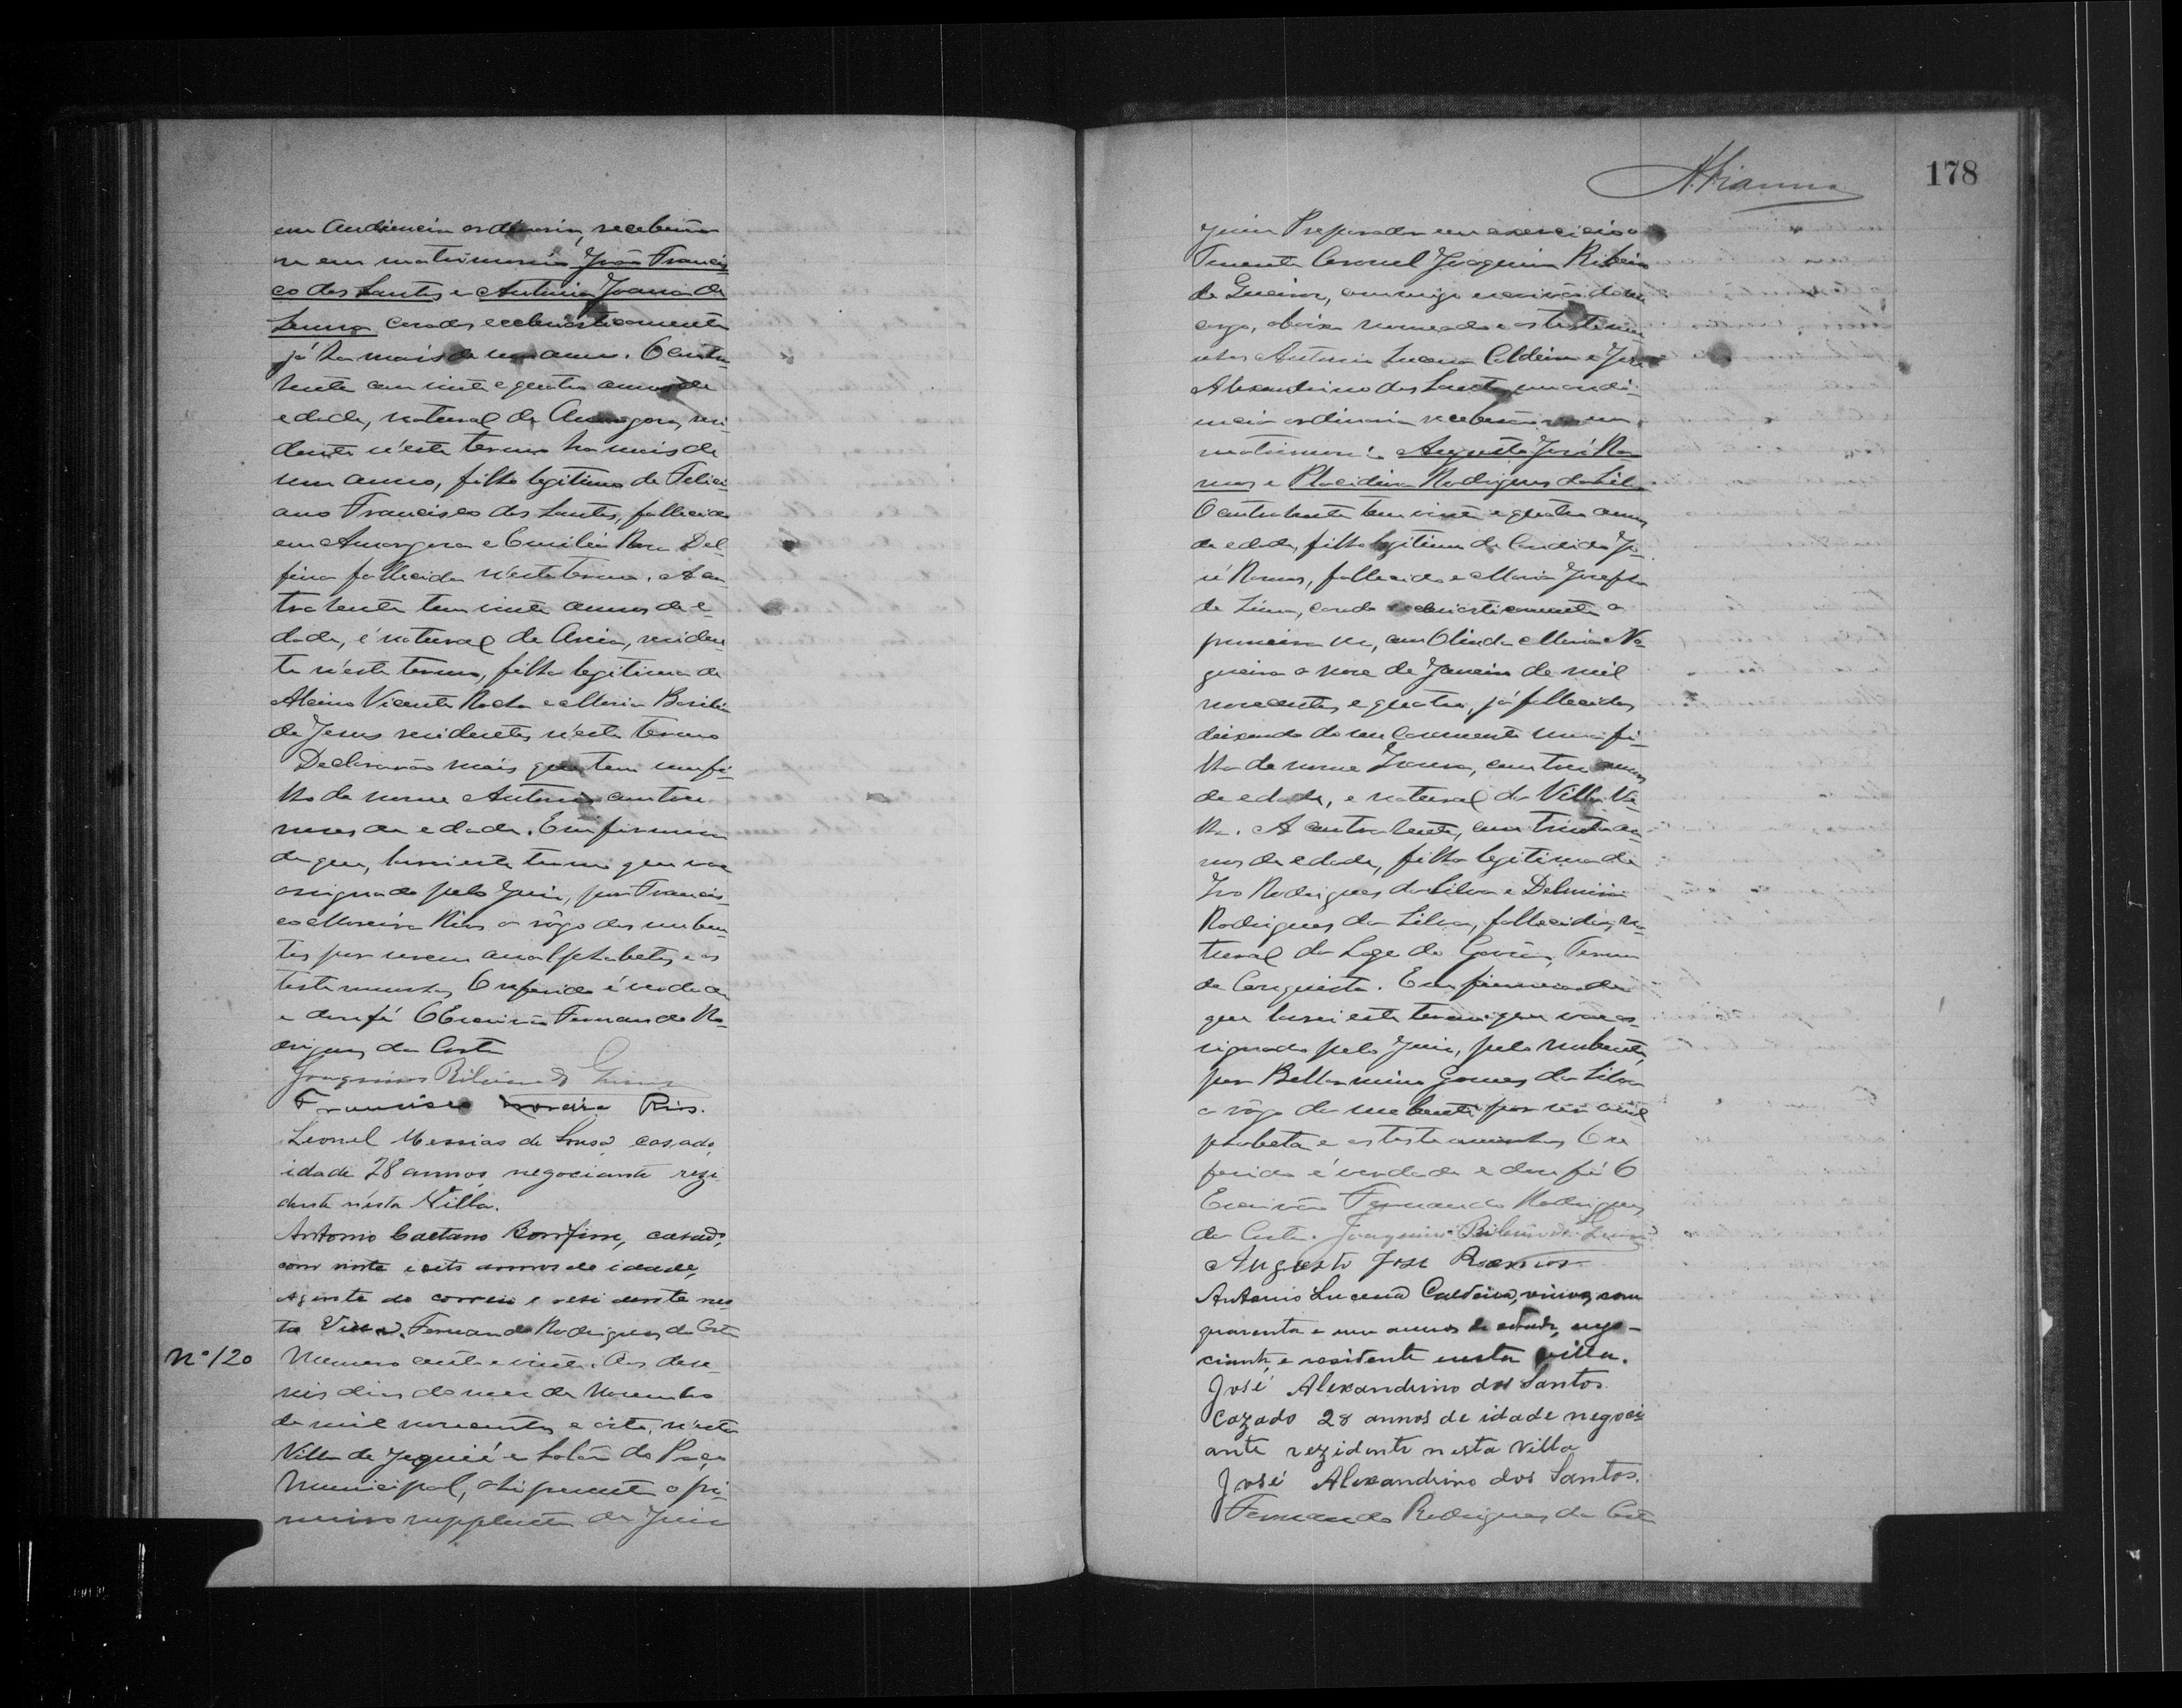 em audiencia ordinaria, receberão-
se em matrimonio João Francis-
co dos Santos e Antonia Joanna de
Souza casados ecclesiasticamente
já ha mais de um anno. O contra-
hente com vinte e quatro annos de
edade, natural de Amargosa, resi-
dente n'este termo ha mais de
um anno, filho legitimo de Felici-
ano Francisco dos Santos, fallecido
em Amargosa e Emilia Rosa Del-
fina fallecida n'este termo. A con-
trahente tem vinte annos de e-
dade, é natural de Areia, residen-
te n'este termo, filha legitima de
Vicente Rocha e Maria Basilia
de Jesus residentes n'este termo
Declararão mais que tem um fi-
lho de nome Antonio com tres
meses de edade. Em firmeza
do que, lavrei este termo que vae
assignado pelo Juiz, por Francis-
co Moreira Rios a rôgo dos nuben-
tes por serem analphabetos, e as
testemunhas. O referido é verdade
e dou fé O Escrivão Fernando Ro-
drigues da Costa
Joaquim Ribeiro de
Francisco Moreira Rios.
Leonel Messias de Souza, casado,
idade 28 annos, negociante rezi
dente nésta Villa.
Antonio Caetano Bomfim, casado,
com vinte e oito annos de idade,
Agente do correio e residente nes
ta Villa. Fernando Rodrigues da Costa
Nº 120
Numero cento e vinte. Aos deze-
seis dias do mez de Novembro
de mil novecentos e oito, n'esta
Villa de Jequié e Salão do Paço
Municipal, ahi presente o pri-
meiro supplente do Juiz
178
Juiz Preparador em exercicio o
Tenente Coronel Joaquim Ribeiro
de commigo escrivão de seu
cargo, abaixo nomeado e as testemu-
nhas Antonio Lucena Caldeira e José
Alexandrino dos Santos, em audi-
encia ordinaria receberão-se em
matrimonio Augusto José Ra-
mos e Placidina Rodrigues da Silva
O contrahente tem vinte e quatro annos
de edade, filho legitimo de Candido Jo-
sé Ramos, fallecido e Maria Josepha
de Lima, casado ecclesiasticamente a
primeira vez, com Olinda Maria No-
gueira a nove de Janeiro de mil
novecentos e quatro, já fallecida,
deixando do seu casamento uma fi-
lha de nome com tres annos
de edade, e natural da Villa Ve-
lha. A contrahente, com trinta an-
nos de edade, filha legitima de
Ivo Rodrigues da Silva e Delmira
Rodrigues da Silva, fallecidos, na-
tural da Termo
de Conquista. Em firmeza do
que lavrei este termo que vae as-
signado pelo Juiz, pelo nubente,
por Bellarmino Gomes da Silva
a rôgo da nubente por ser anal
phabeta e as testemunhas. O re
ferido é verdade e dou fé O
Escrivão Fernando Rodrigues
da Costa. Joaquim Ribeiro de
Augusto José Ramos
Antonio Lucena Caldeira, viuvo, com
quarenta e um annos de edade, nego-
ciante, e residente nesta villa.
José Alexandrino dos Santos
Cazado 28 annos de idade negoci
ante rezidente nesta Villa
José Alexandrino dos Santos.
Fernando Rodrigues da Costa